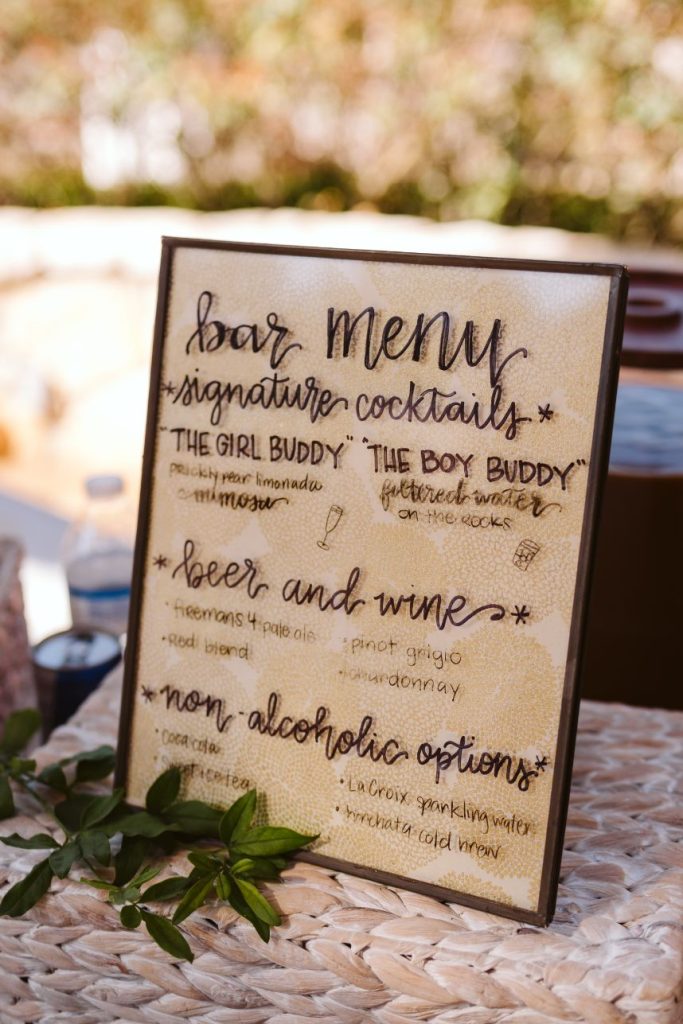 bar menu
*signature cocktails*
"THE GIRL BUDDY" "THE BOY BUDDY"
prickly pear limonada filtered water
mimosa on the rocks
*beer and wine*
• firemans 4 pale ale • pinot grigio
• Red blend • chardonnay
*non-alcoholic options*
• Coca cola • LaCroix sparkling water
• Sweet ice tea • horchata cold brew